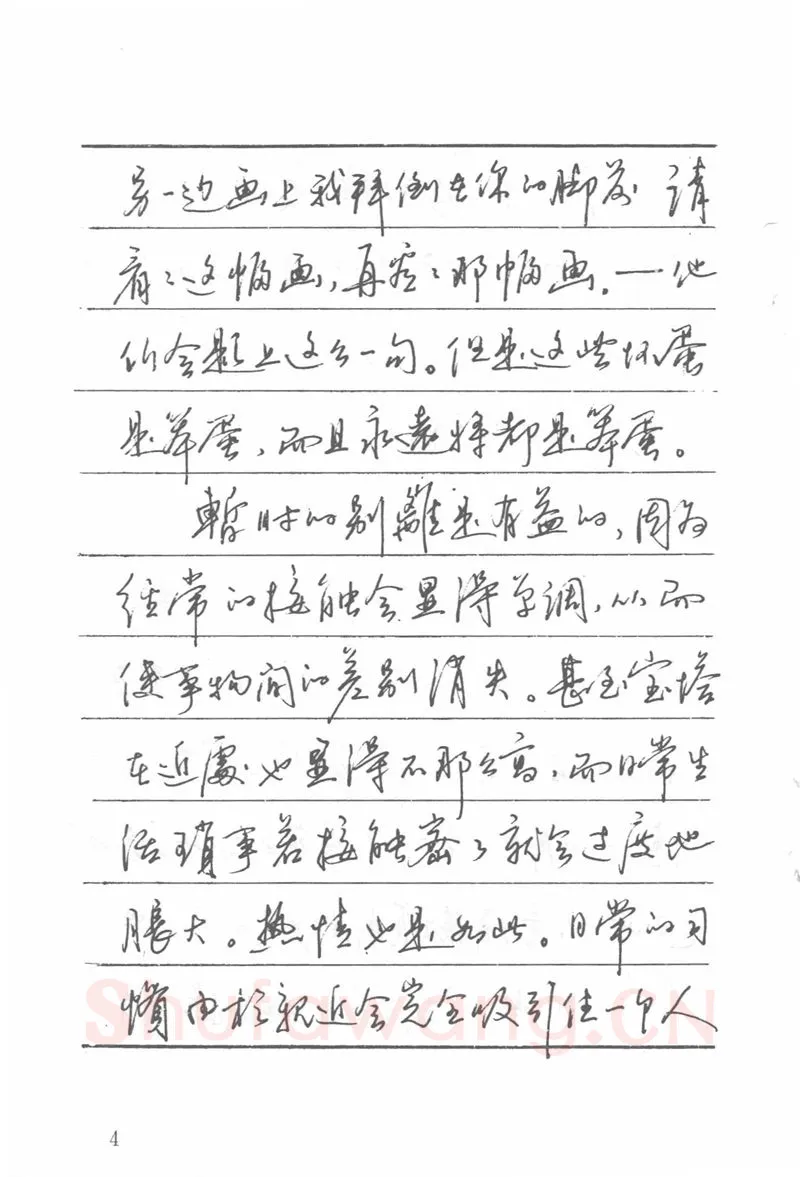 另一边画上我拜倒在你的脚前 请
看看这幅画，再看看那幅画。一他
们会题上这么一句。但是这些坏蛋
是笨蛋，而且永远将都是笨蛋。
暫时的别離是有益的，因为
经常的接触会显得单调，从而
使事物间的差别消失。甚至宝塔
在近處也显得不那么高，而日常生
活琐事若接触密了就会过度地
胀大。热情也是如此。日常的习
惯由於親近会完全吸引住一个人
Shufawang.CN
4